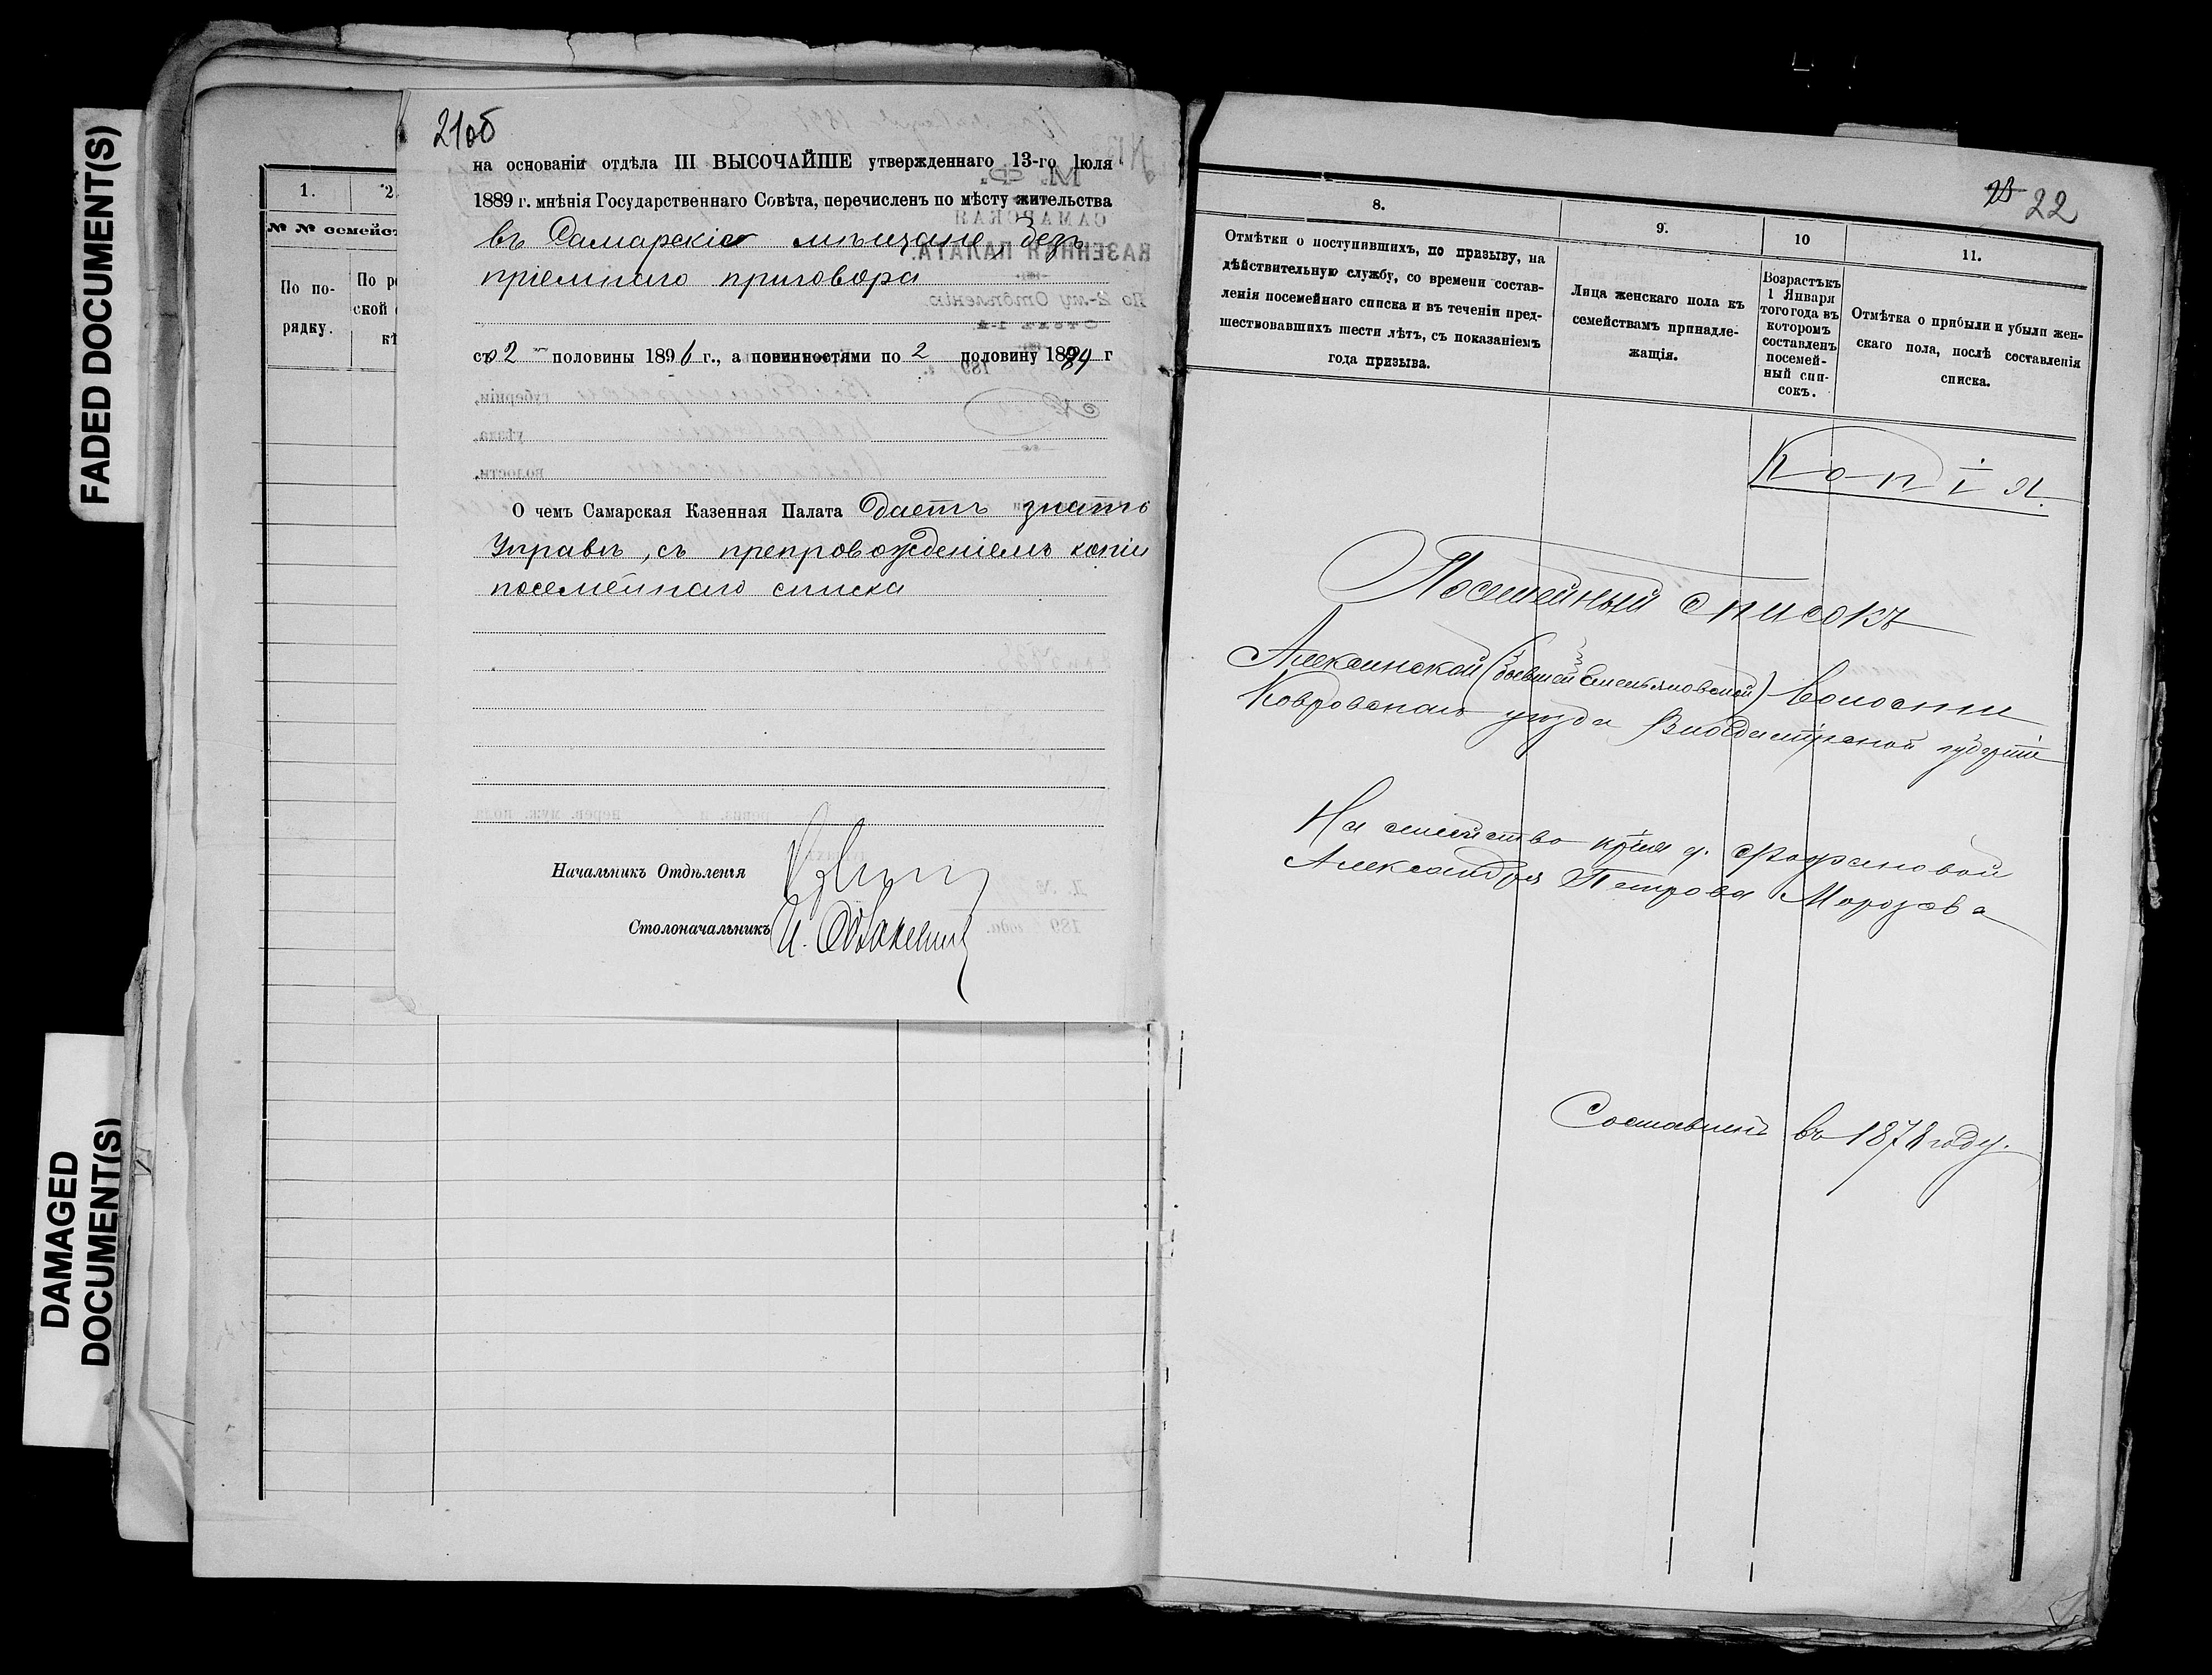 FADED DOCUMENT(S)
DAMAGED
DOCUMENT(S)
21об
1.
2.
№ № семейс
По по-
рядку.
По р
ской
на основаніи отдѣла III ВЫСОЧАЙШЕ утвержденнаго 13-го Іюля
1889 г. мнѣнія Государственнаго Совѣта, перечисленъ по мѣсту жительства
въ Самарскіе мѣщане, безъ
пріемнаго приговора
со 2 половины 1896 г., а повинностями по 2 половину 1894 г
О чемъ Самарская Казенная Палата даетъ знать
Управѣ, съ препровожденіемъ копіи
посемейнаго списка
Начальникъ Отдѣленія
Столоначальникъ
22
8.
9.
10
11.
Отмѣтки о поступившихъ, по призыву, на
дѣйствительную службу, со времени состав-
ленія посемейнаго списка и въ теченіи пред-
шествовавшихъ шести лѣтъ, съ показаніемъ
года призыва.
Лица женскаго пола къ
семействамъ принадле-
жащія.
Возрастъ къ
1 Января
того года въ
которомъ
составленъ
посемей-
ный спи-
сокъ.
Отмѣтка о прибыли и убыли жен-
скаго пола, послѣ составленія
списка.
Копія.
Посемейный списокъ
Алексинской (бывшей Емельяновской) волости
Ковровскаго уѣзда Владимірской губерніи
На семейство кр-на д.
Александра Петрова Морозова
Составленъ въ 1878 году.